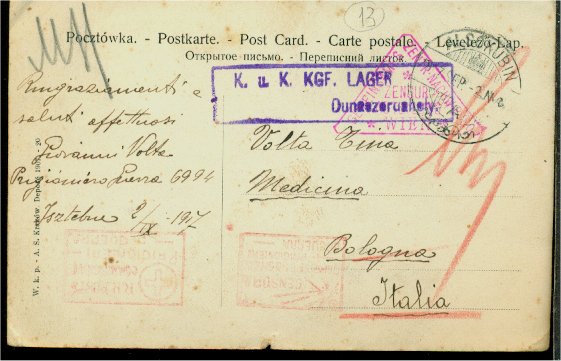 13
Pocztówka. - Postkarte. - Post Card. - Carte postale. - Levelező-Lap.
Открытое письмо. - Переписний листок.
K. u. K. KGF. LAGER
Dunaszerdahely.
ZENSUR
* WIEN *
ALSÓKUBIN
Ringraziamenti e
saluti affettuosi
Giovanni Volta
Prigioniero Guerra 6994
Isztebne 2/IX - 1917
Volta Tina
Medicina
Bologna
Italia
W. k. p. - A. S. Kraków